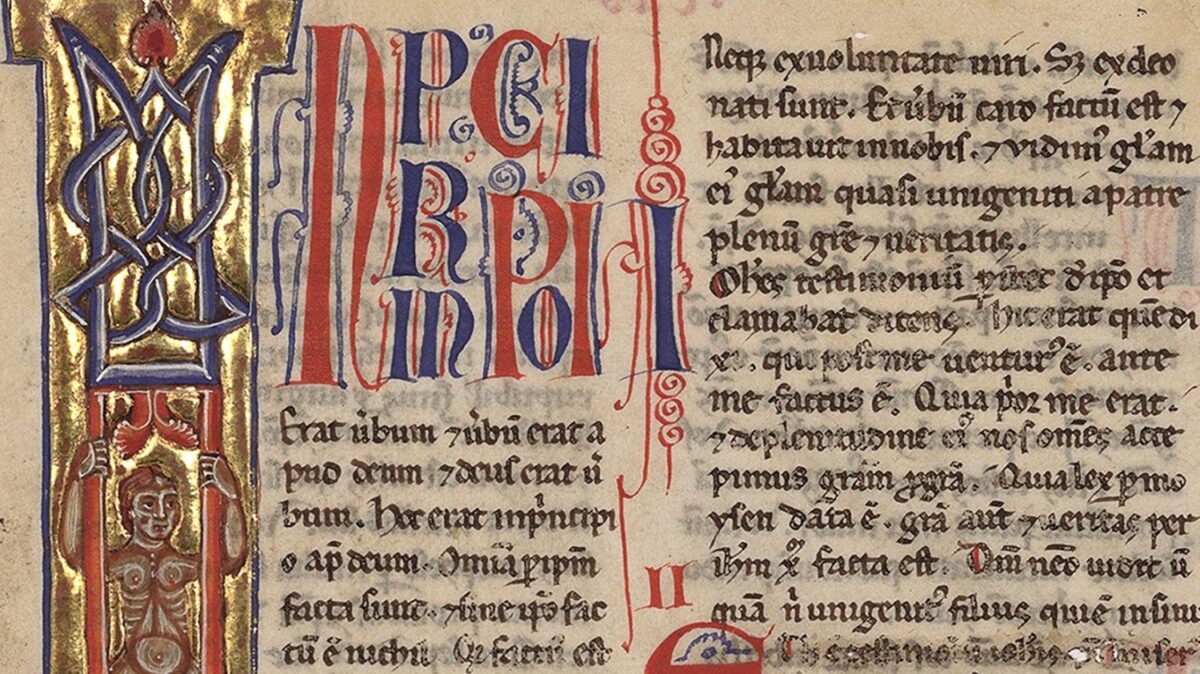 N P CI
R PI
IN PO I
Erat ũbum ⁊ ũbũ erat a
pud deum ⁊ deus erat ũ
bum. Hoc erat inpͥncipi
o ap̃ deum. Omĩa ꝑ ip̃m
facta sunt. ⁊ sine ip̃o fac
tũ ẽ nichil. Qͥ factũ est
Neqꝫ exuoluntate uiri. Sꝫ exdeo
nati sunt. Et ũbũ caro factũ est ⁊
habitauit innobis. ⁊ vidimꝰ gl̃am
eiꝰ gl̃am quasi unigeniti apatre
plenũ gr̃e ⁊ ueritatis.
Ioh̃es testimoniũ ꝑhibet d̾ip̃o et
clamabat dicens. hic erat quẽ di
xi. qui post me uenturꝰ ẽ. ante
me factus ẽ. Quia pͥor me erat.
⁊ de plenitudine eiꝰ nos om̃es acce
pimus gr̃am ꝓ gr̃a. Quia lex ꝑ mo
ysen data ẽ. gr̃a aũt ⁊ ueritas per
ih̃m xp̃m facta est. Dm̃ nẽo uidit ũ
quã ñ unigenitꝰ filius qui ẽ insinu
II